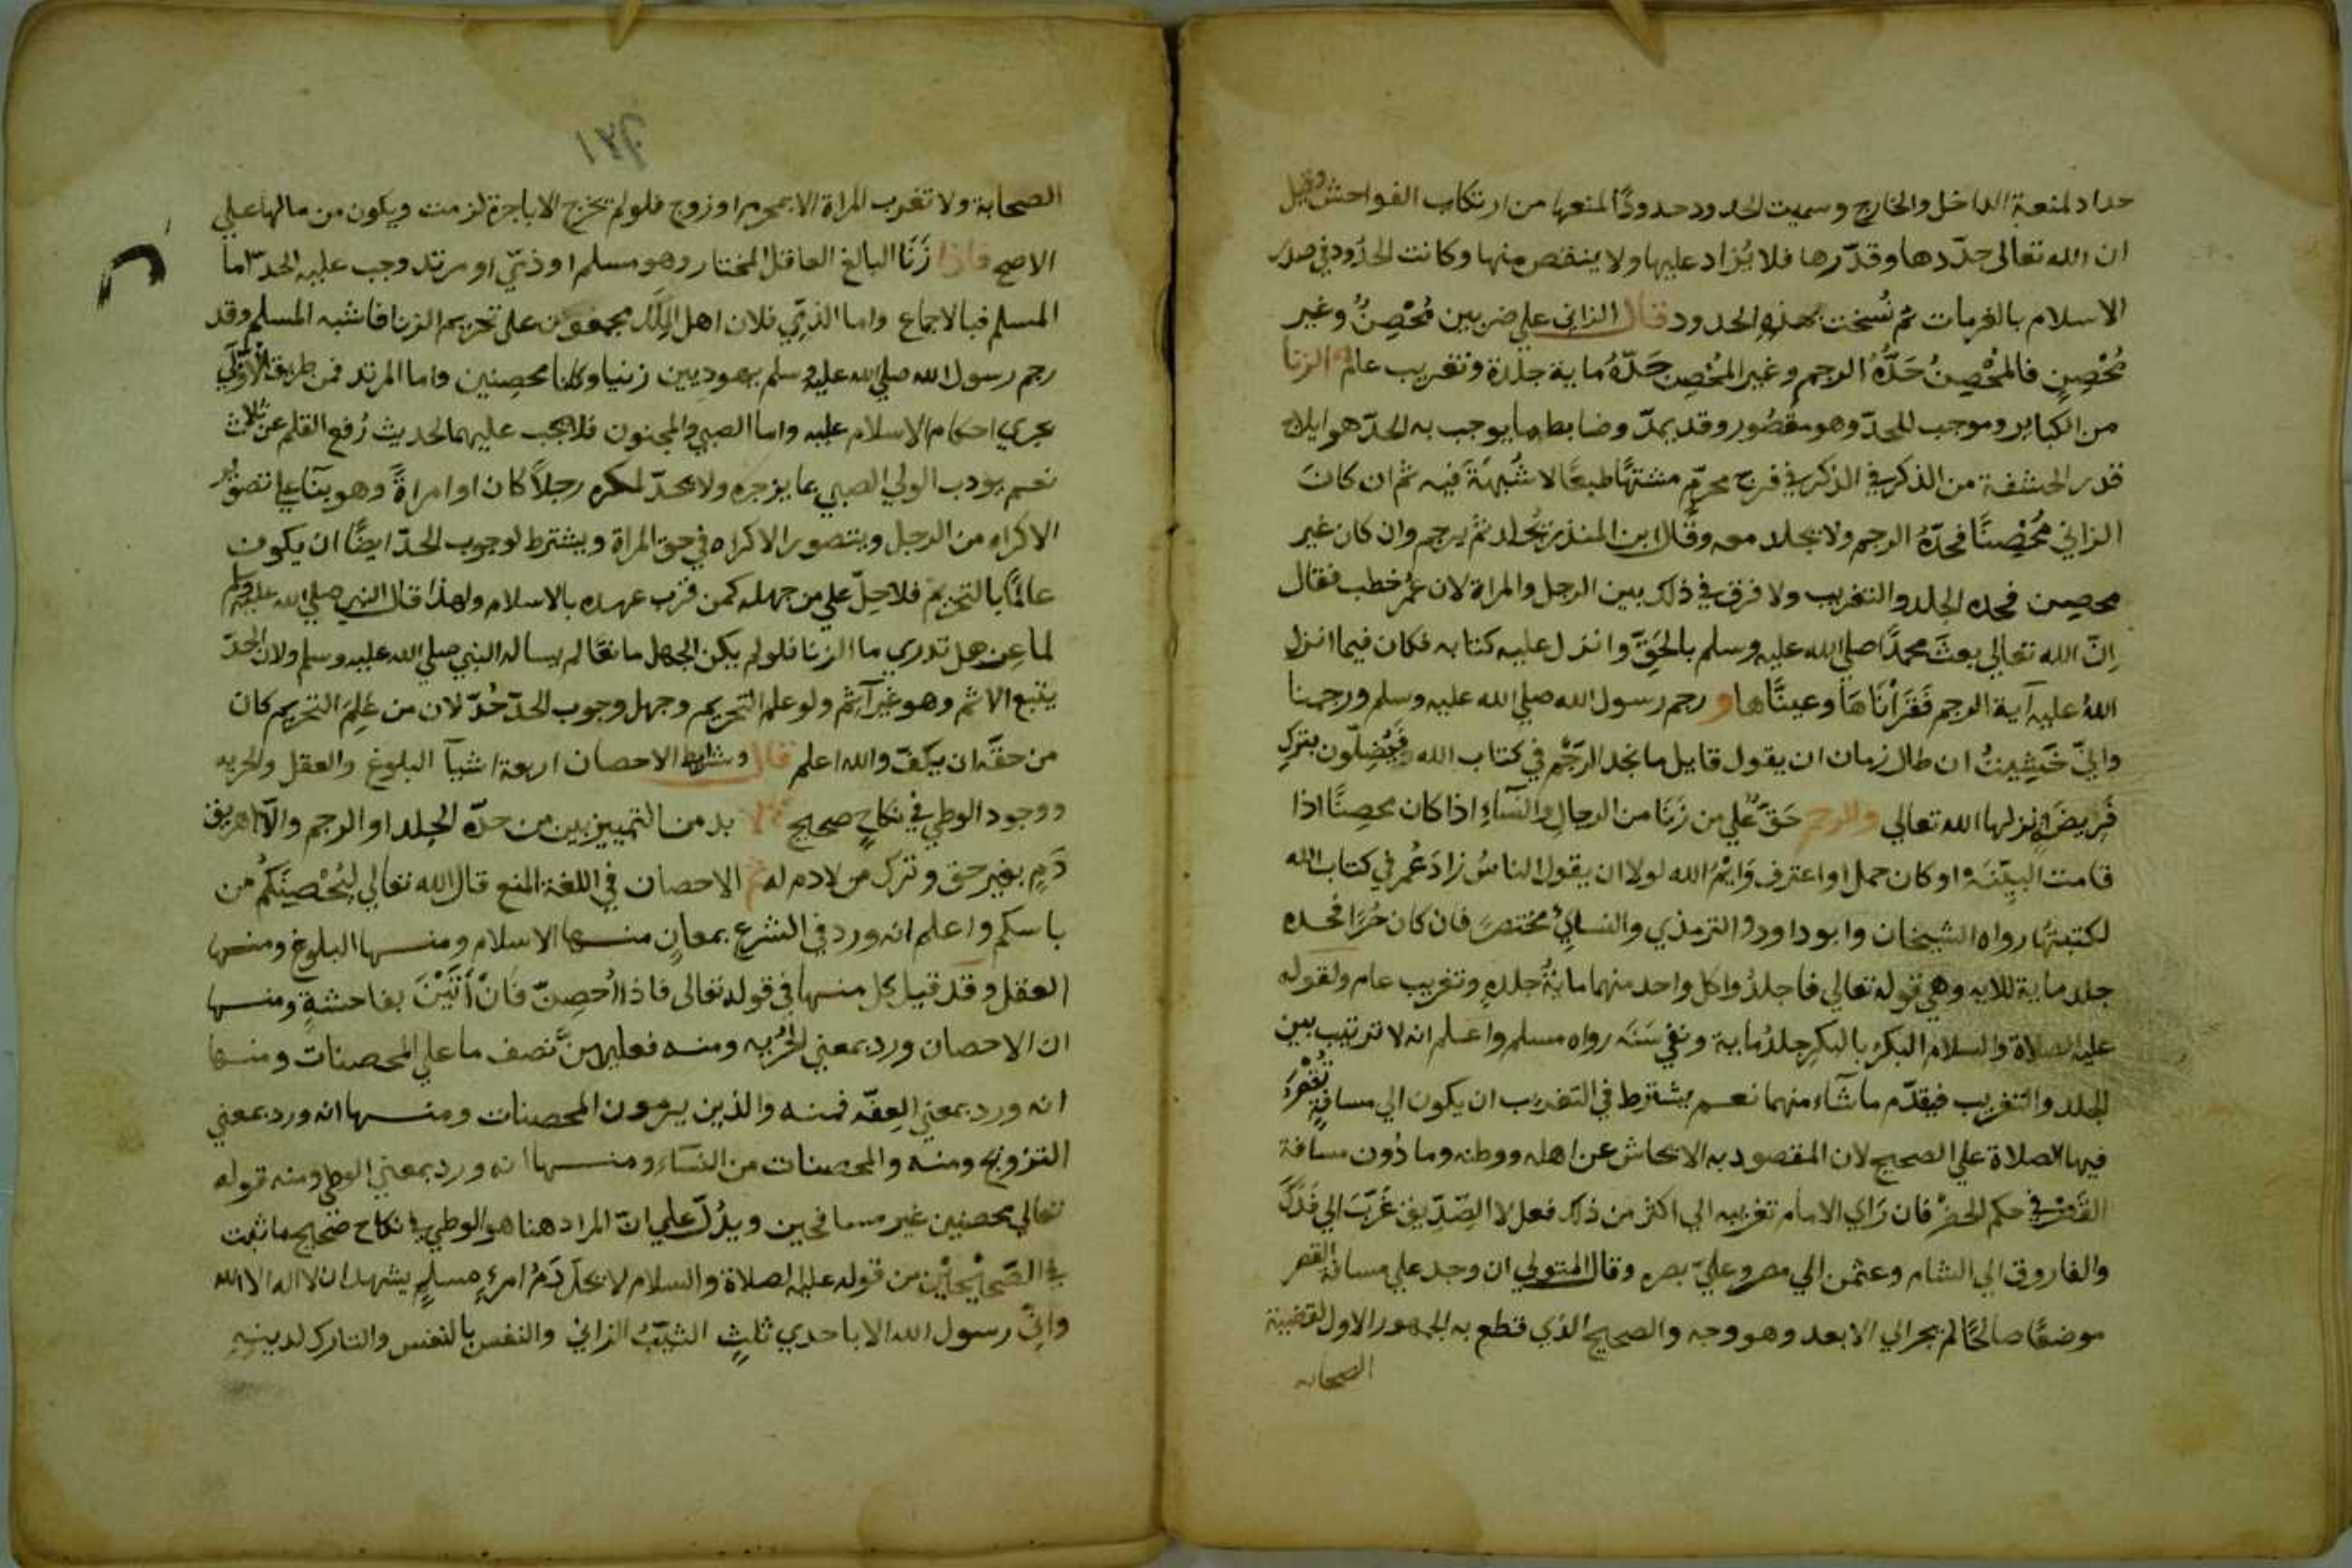 حداد لمنعه الداخل والخارج وسميت الحدود حدودًا لمنعها من ارتكاب الفواحش وقيل
ان الله تعالى حدّدها وقدّرها فلا يُزاد عليها ولا ينقص منها وكانت الحدُود في صدر
الاسلام بالغرمات ثم نُسخت بهذه الحدود قال الزاني علي ضربين مُحْصِنُ وغير
مُحْصِنٍ فالمُحْصِنُ حَدُّهُ الرجم وغير المُحْصِن حَدّهُ ماية جلدة وتغريب عام الزنا
من الكباير وموجب للحدّ وهو مقصُور وقد يمدّ وضابط ما يوجب به الحدّ هو ايلاج
قدر الحشفة من الذكر في الذكر في فرج محرّم مشتهًا طبعًا لا شُبهَةَ فيه ثم ان كانَ
الزاني مُحْصِنًا فحدّهُ الرجم ولا يجلد معه وقال ابن المنذر يُجلد ثم يرجم وان كان غير
محصِن فحده الجلد والتغريب ولا فرق في ذلك بين الرجل والمراة لان عُمر خطب فقال
اِنّ الله تعالي بعثَ محمدًا صلي الله عليه وسلم بالحَقّ وانزل عليه كتابه فكان فيما انزل
اللهُ عليه آية الرجم فَقَرَأنَاهَا وعينّاها و رجم رسول الله صلي الله عليه وسلم ورجمنا
وانيّ خَشِيتُ ان طال زمان ان يقول قايل ما نجد الرَجْم في كتاب الله فَيَضِلّون بترك
فَريضَة انزلها الله تعالي والرجم حَقّ علي من زَنَا من الرجال والنسآءِ اذا كان محصِنًا اذا
قامت البيّنَه او كان حمل او اعترف وَايمُ الله لولا ان يقول الناسُ زادَ عُمر في كتاب الله
لكتبتهَا رواه الشيخان وابو داود والترمذي والنسائي مختصرً فان كان حُرًا فحده
جلد ماية للايه وهي قوله تعالي فاجلدُوا كل واحد منهما ماية جلدهِ وتغريب عام ولقوله
عليه الصلاة والسلام البكرُ بالبكرِ جلدُ ماية ونفي سَنَه رواه مسلم واعلم انه لا ترتيب بين
الجلد والتغريب فيقدّم ما شآء منهما نعم يشترط في التغريب ان يكون الي مسافةٍ تُقْصَر
فيها الصلاة علي الصحيح لان المقصود به الايحاش عن اهله ووطنه وما دُون مسافة
القَصْر في حكم الحضَر فان رَاي الامام تغريبه الي اكثر من ذلك فعل لا الصّدِّيق غَرّبَ الي فَدَكَ
والفاروق الي الشام وعثمن الي مصر وعليّ بصره وقال المتولي ان وجد علي مسافة القصر
موضعًا صالحًا لم يجز الي الابعد وهو وجه والصحيح الذي قطع به الجمهور الاول لقضية
الصحابه
الصحابة ولا تغرب المراة الا بمحرم او زوج فلو لم يخرج الا باجرة لزمت ويكون من مالها علي
الاصح فاذا زَنَا البالغ العاقل المختار وهو مسلم او ذمّي او مرتد وجب عليه الحدّ اما
المسلم فبالاجماع واما الذمّي فلان اهل الملل مجمعون علي تحريم الزنا فاشبه المسلم وقد
رجم رسول الله صلي الله عليه وسلم يهوديين زنيا وكانا محصِنين واما المرتد فمن طريق الاَوْليَ
يجري احكام الاسلام عليه واما الصبي والمجنون فلا يجب عليهما لحديث رُفع القلم عن ثلاث
نعم يودب الولي الصبي بما يزجره ولا يحدّ لمكره رجلاً كان او امراةً وهو بنآ علي تصور
الاكراه من الرجل ويتصور الاكراه في حق المراة ويشترط لوجوب الحدّ ايضًا ان يكون
عالمًا بالتحريم فلا حدّ علي من جهله كمن قرب عهده بالاسلام ولهذا قال النبي صلي الله عليه وسلم
لماعِز هل تدري ما الزنا فلو لم يكن الجهل مانعًا لم يساله النبي صلي الله عليه وسلم ولان الحدّ
يتبع الاثم وهو غير آثم ولو علم التحريم وجهل وجوب الحدّ حُدّ لان من عَلِمَ التحريم كان
من حقّه ان يكفّ والله اعلم قال وشرايط الاحصان اربعة اشيآ البلوغ والعقل والحريه
ووجود الوطي في نكاحٍ صحيح بد من التمييز بين من حدّه الجلد او الرجم والا اهريق
دَمٍ بغير حق وترك من لا دم له ثم الاحصان في اللغة المنع قال الله تعالي لِتُحْصِنَكُم من
باسكم واعلم انه ورد في الشرع بمعانٍ منها الاسلام ومنها البلوغ ومنها
العقل وقد قيل بكل منها في قوله تعالى فاذا اُحصِنّ فَاِنْ أَتَيْنَ بفاحشةٍ ومنها
ان الاحصان ورد بمعني الحُريه ومنه فعليهنّ نصف ما علي المحصنات ومنها
انه ورد بمعني العِفّه فمنه والذين يرمون المحصنات ومنها انه ورد بمعني
التزويج ومنه والمحصنات من النسَاء ومنها انه ورد بمعني الوطي ومنه قوله
تعالي محصنين غير مسافحين ويدُلّ علي انّ المراد هنا هو الوطي في نكاح صَحيح ما ثبت
في الصّحِيْحَيْن من قوله عليه الصلاة والسلام لا يحلّ دَمُ امرئٍ مسلمٍ يشهد ان لا اله الا الله
وانّي رسول الله الا باحدي ثلثٍ الثيّبُ الزاني والنفس بالنفس والتارك لدينهِ